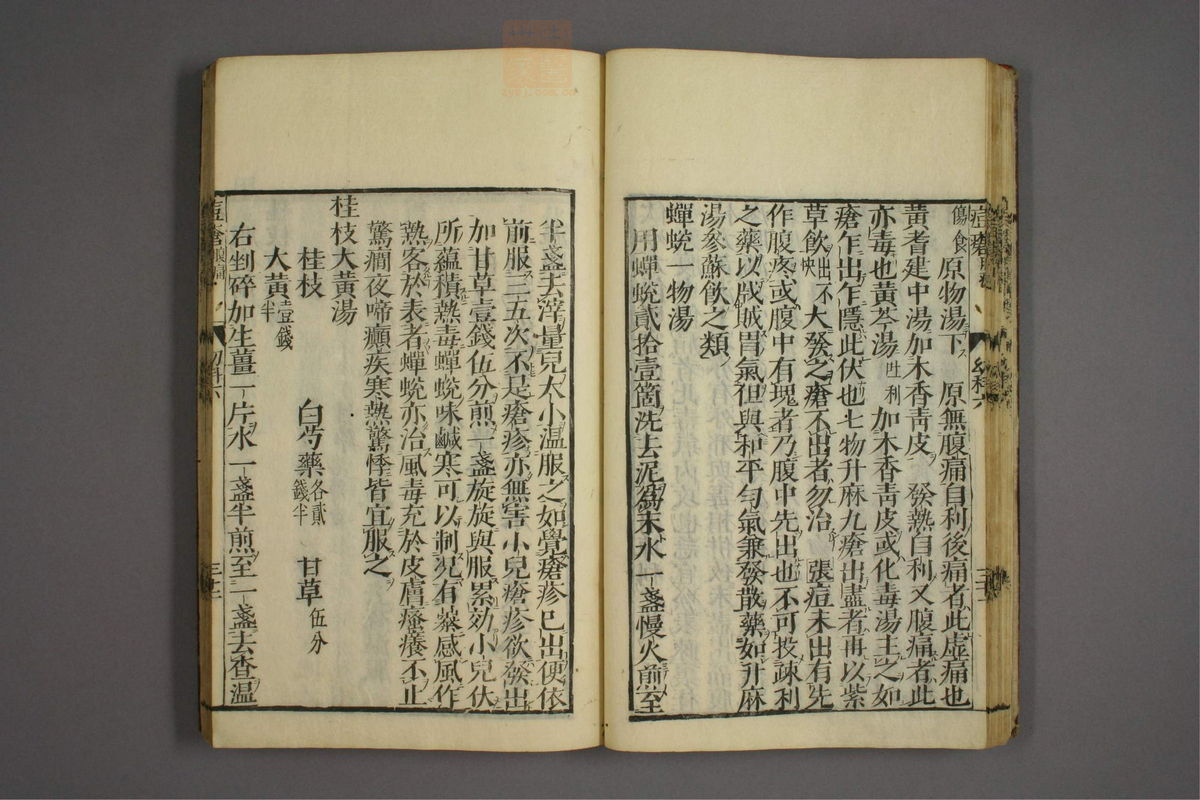 傷食 原物湯下 原無腹痛自利後痛者此虛痛也
黃耆建中湯加木香青皮 發熱自利又腹痛者此
亦毒也黃芩湯 吐利 加木香青皮或化毒湯主之如
瘡乍出乍隱此伏也七物升麻丸瘡出盡者再以紫
草飲 出不快 大發之瘡不出者勿治 張痘未出有先
作腹疼或腹中有塊者乃腹中先出也不可投疎利
之藥以戕賊胃氣但與和平勻氣兼發散藥如升麻
湯參蘇飲之類
蟬蛻一物湯
用蟬蛻貳拾壹箇洗去泥為末水一盞慢火煎至
半盞去滓量兒大小溫服之如覺瘡疹已出便依
前服三五次不是瘡疹亦無害小兒瘡疹欲發出
加甘草壹錢伍分煎一盞旋旋與服累効小兒伏
所蘊積熱毒蟬蛻味鹹寒可以制兒有暴感風作
熱客於表者蟬蛻亦治風毒充於皮膚瘙癢不止
驚癇夜啼癲疾寒熱驚悸皆宜服之
桂枝大黃湯
桂枝 白芍藥 各貳錢半 甘草 伍分
大黃 壹錢半
右剉碎加生薑一片水一盞半煎至一盞去查溫